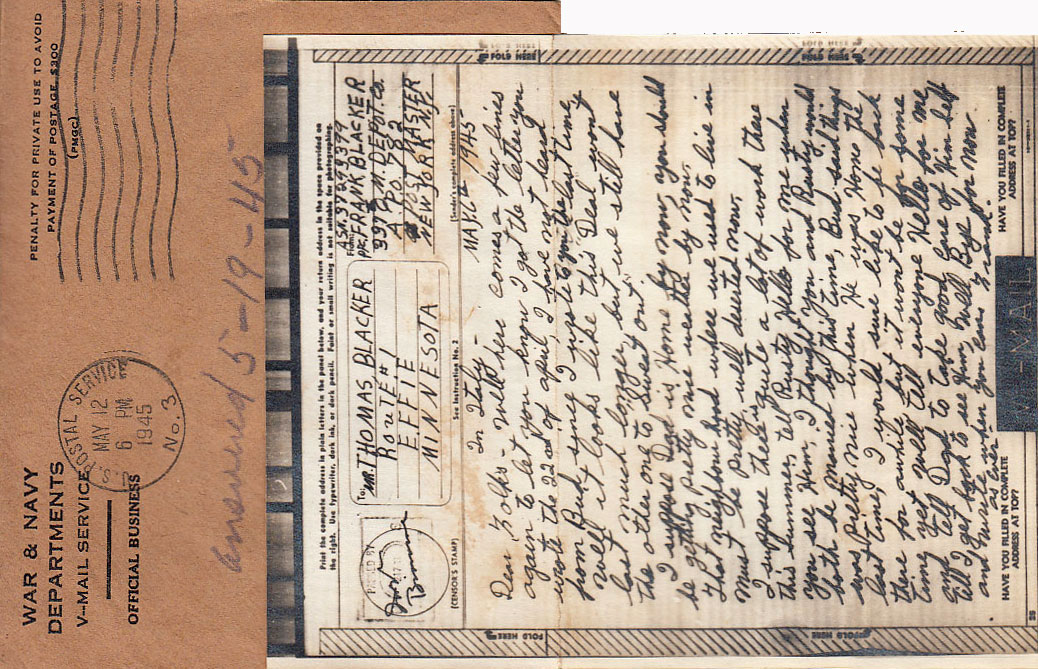 WAR & NAVY
DEPARTMENTS
V--MAIL SERVICE
OFFICIAL BUSINESS
U.S. POSTAL SERVICE
MAY 12
6 PM
1945
No. 3
PENALTY FOR PRIVATE USE TO AVOID
PAYMENT OF POSTAGE, $300
(PMGC)
Answered 5-19-45
FOLD HERE
FOLD HERE
Print the complete address in plain letters in the panel below, and your return address in the space provided on
the right. Use typewriter, dark ink, or dark pencil. Faint or small writing is not suitable for photographing.
PASSED BY
(CENSOR'S STAMP)
To: MR. THOMAS BLACKER
ROUTE #1
EFFIE
MINNESOTA
See Instruction No. 2
From:
ASN. 37291939
PFC. FRANK BLACKER
M. DEPOT. Co.
A.P.O. 782
% POST MASTER
NEW YORK N.Y.
(Sender's complete address above)
In Italy - MAY. 6th 1945
Dear Folks - well here comes a few lines
again to let you know I got the letter you
wrote the 22nd of april, I have not heard
from Bud since I wrote to you the last time
well it looks like this Deal won't
last much longer, but we still have
the other one to sweat out.
I suppose Dad is Home by now, you should
be getting pretty nice weather by now
that neighbourhood where we used to live in
must be Pretty well diserted now.
I suppose there is quite a lot of work there
this summer, tell Rusty Hello for me when
you see Him, I thought you and Rusty would
both be maried by this time, Bud said things
was Pretty nice when He was Home the
last time, I would sure like to be back
there for awhile but it won't be for some
time yet, well tell everyone Hello for me
and tell Dad to take good care of Him self
till I get back to see Him, well Bye for now
and write when you can
as Ever
HAVE YOU FILLED IN COMPLETE
ADDRESS AT TOP?
V-MAIL
HAVE YOU FILLED IN COMPLETE
ADDRESS AT TOP?
FOLD HERE
FOLD HERE